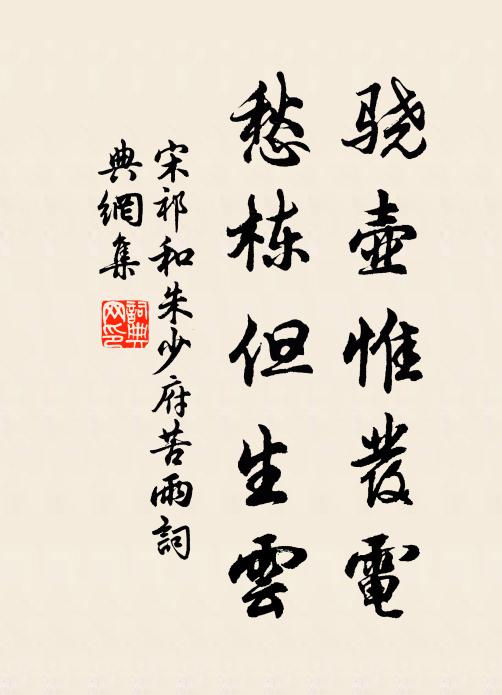 骁壶惟發電
愁栋但生雲
宋祁和朱少府苦雨詞
典網集
詞典网印